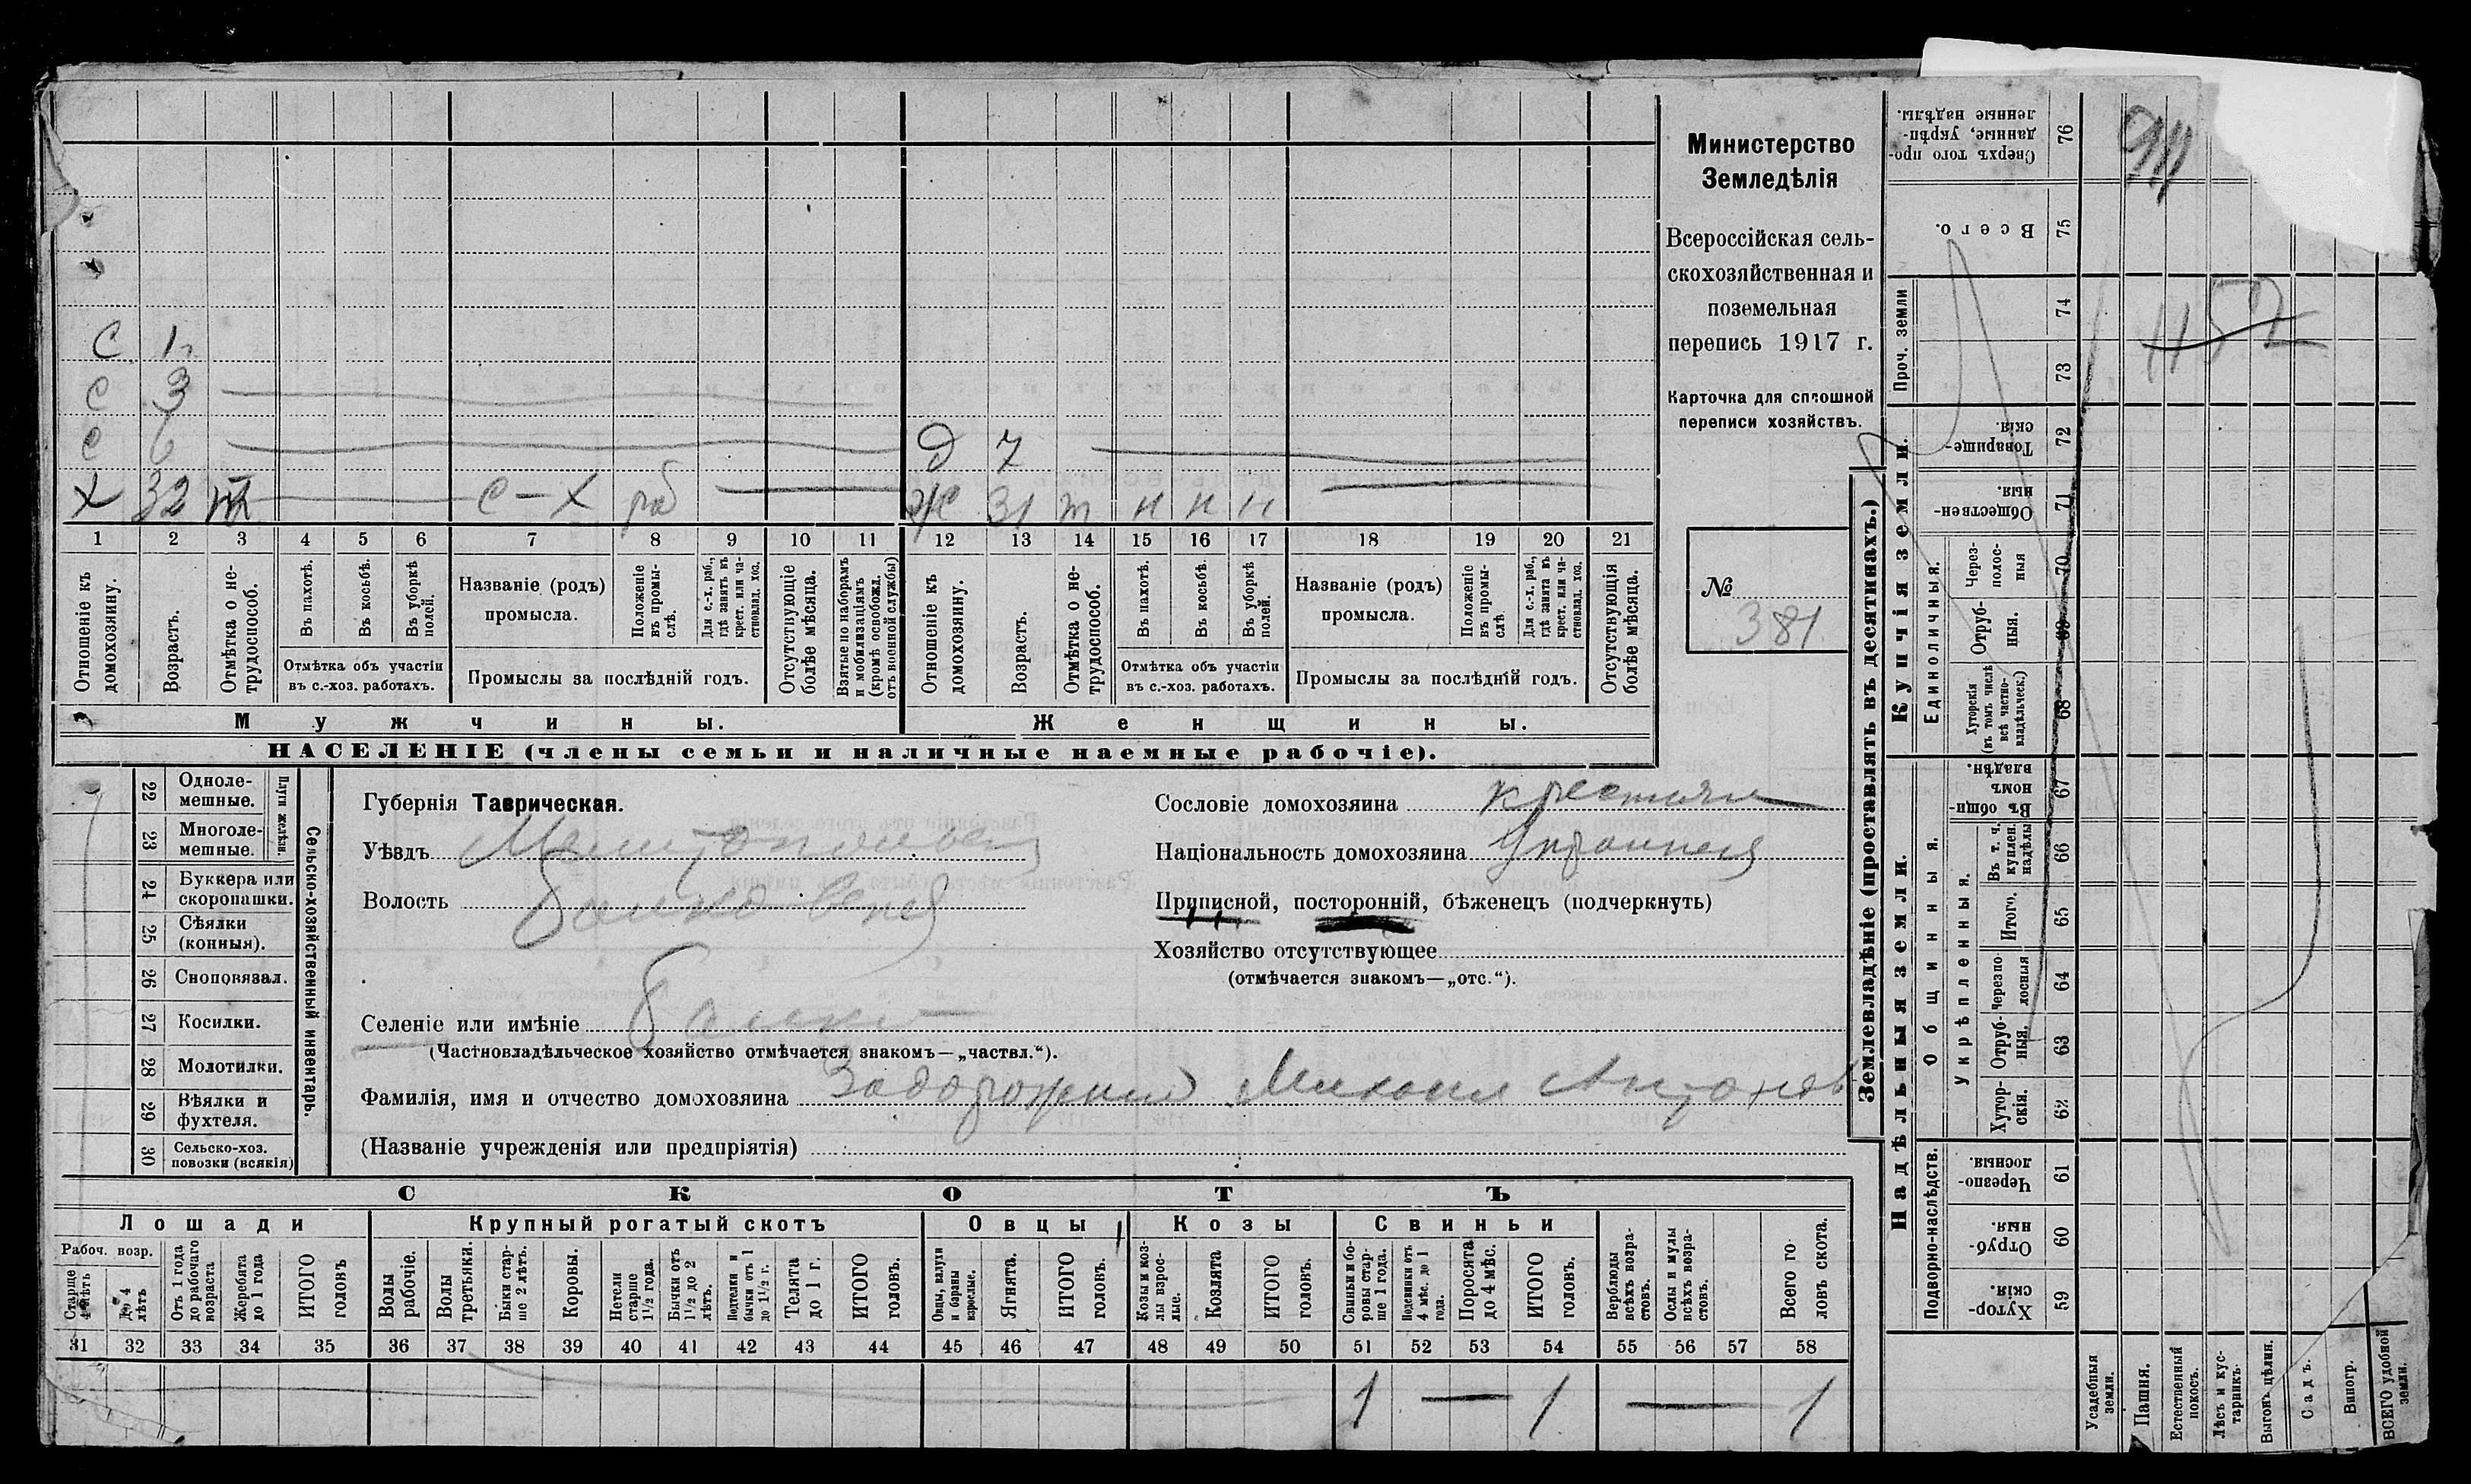 Министерство
Земледѣлія
Всероссійская сель-
скохозяйственная и
поземельная
перепись 1917 г.
Карточка для сплошной
переписи хозяйствъ.
№
381
С 1
С 3
С 6
Д 7
Х 32 С-Х раб
Ж 31 т н н н
1 2 3 4 5 6 7 8 9 10 11 12 13 14 15 16 17 18 19 20 21
Отношеніе къ домохозяину.
Возрастъ.
Отмѣтка о не-трудоспособ.
Въ пахотѣ.
Въ косьбѣ.
Въ уборкѣ полей.
Отмѣтка объ участіи въ с.-хоз. работахъ.
Названіе (родъ) промысла.
Положеніе въ промы-слѣ.
Для с.-х. раб., гдѣ занятъ въ крест. или ча-стновлад. хоз.
Промыслы за послѣдній годъ.
Отсутствующіе болѣе мѣсяца.
Взятые по наборамъ и мобилизаціямъ (кромѣ освобожд. отъ военной службы)
Отношеніе къ домохозяину.
Возрастъ.
Отмѣтка о не-трудоспособ.
Въ пахотѣ.
Въ косьбѣ.
Въ уборкѣ полей.
Отмѣтка объ участіи въ с.-хоз. работахъ.
Названіе (родъ) промысла.
Положеніе въ промы-слѣ
Для с.-х. раб., гдѣ занята въ крест. или ча-стновлад. хоз.
Промыслы за послѣдній годъ.
Отсутствующія болѣе мѣсяца.
Мужчины.
Женщины.
НАСЕЛЕНІЕ (члены семьи и наличные наемные рабочіе).
22 Одноле-мешные.
23 Многоле-мешные.
Плуги желѣзн.
24 Буккера или скоропашки.
25 Сѣялки (конныя).
26 Сноповязал.
27 Косилки.
28 Молотилки.
29 Вѣялки и фухтеля.
30 Сельско-хоз. повозки (всякія)
Сельско-хозяйственный инвентарь.
Губернія Таврическая.
Уѣздъ Мелитопольск
Волость Балковск
Селеніе или имѣніе Балки
(Частновладѣльческое хозяйство отмѣчается знакомъ—„частвл.“).
Фамилія, имя и отчество домохозяина Задорожний Михаил Антонов
(Названіе учрежденія или предпріятія)
Сословіе домохозяина крестьян
Національность домохозяина Украинец
Приписной, посторонній, бѣженецъ (подчеркнуть)
Хозяйство отсутствующее
(отмѣчается знакомъ—„отс.“).
СКОТЪ
Лошади
Крупный рогатый скотъ
Овцы
Козы
Свиньи
Рабоч. возр.
Старше 4 лѣтъ
До 4 лѣтъ
Отъ 1 года до рабочаго возраста
Жеребята до 1 года
ИТОГО головъ
Волы рабочіе.
Волы третьяки.
Быки стар-ше 2 лѣтъ.
Коровы.
Нетели старше 1½ года.
Бычки отъ 1½ до 2 лѣтъ.
Подтелки и бычки отъ 1 до 1½ г.
Телята до 1 г.
ИТОГО головъ.
Овцы, валухи и бараны взрослые.
Ягнята.
ИТОГО головъ.
Козы и коз-лы взрос-лые.
Козлята
ИТОГО головъ.
Свиньи и бо-ровы стар-ше 1 года.
Подсвинки отъ 4 мѣс. до 1 года.
Поросята до 4 мѣс.
ИТОГО головъ.
Верблюды всѣхъ возра-стовъ.
Ослы и мулы всѣхъ возра-стовъ.
Всего го ловъ скота.
31 32 33 34 35 36 37 38 39 40 41 42 43 44 45 46 47 48 49 50 51 52 53 54 55 56 57 58
1 — 1 — 1
Землевладѣніе (проставлять въ десятинахъ.)
Купчія земли.
Надѣльныя земли.
Сверхъ того про-данные, укрѣп-ленные надѣлы. 76
Всего. 75
Проч. земли 74 73
Товарище-скія. 72
Обществен-ныя. 71
Единоличныя.
Через-полос-ныя 70
Отруб-ныя. 69
Хуторскія (въ томъ числѣ всѣ частно-владѣльческ.) 68
Общинныя.
Въ общин-номъ владѣн. 67
Укрѣпленныя.
Въ т. ч. куплен. надѣлы 66
Итого. 65
Черезпо-лосныя 64
Отруб-ныя. 63
Хутор-скія. 62
Подворно-наслѣдств.
Черезпо-лосныя. 61
Отруб-ныя. 60
Хутор-скія. 59
Усадебныя земли.
Пашня.
Естественный покосъ.
Лѣсъ и кус-тарникъ
Выгонъ цѣлин.
Садъ.
Виногр.
ВСЕГО удобной земли.